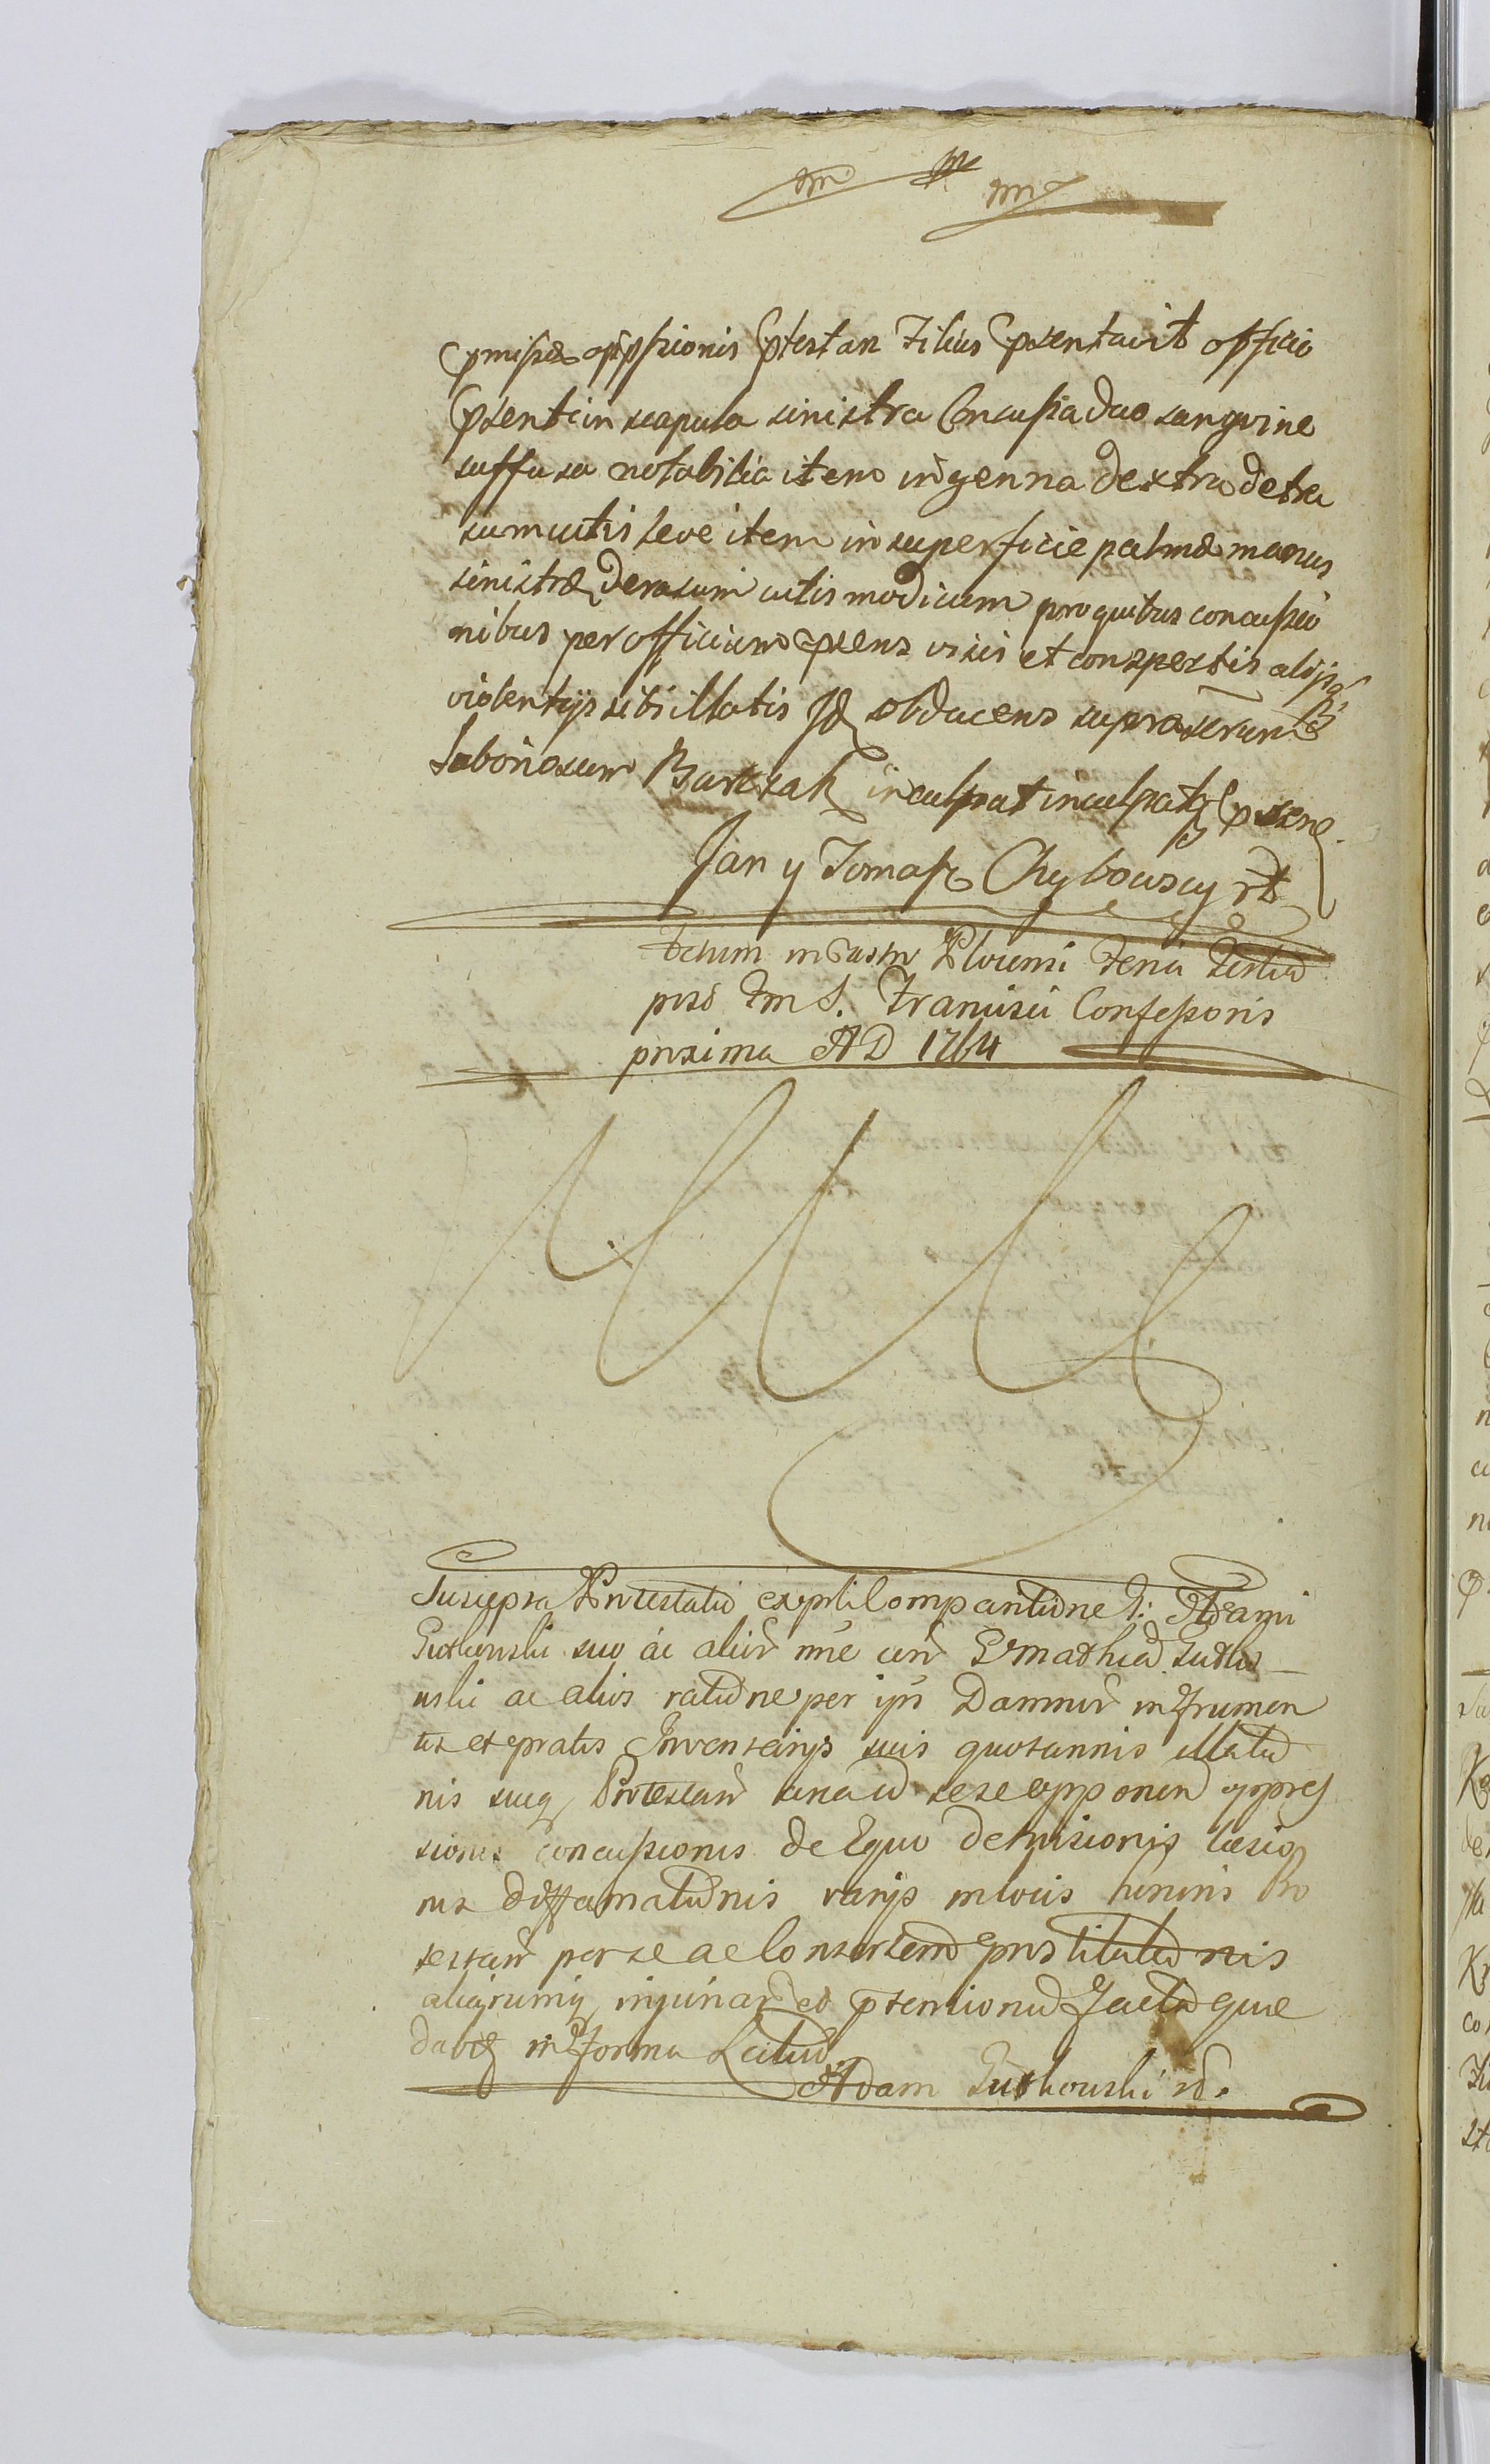 pmissæ oppssionis ptestan Filius psentavit officio
psenti in scapula sinistra Concussia duo sangvine
suffusa notabilia item in genna dextra detra
sum cutis leve item in superficie palmæ manus
sinistræ derasum cutis modicum pro quibus concussio
nibus per officium psens visis et conspectis alijsq
violentijs sibi illatis obducens supra
laboriosum Bartszak inculpat inculpatq
Jan y Tomasz Chybowscy rd
Actum in Castro Plocensi Feria Tertia
post Fm S. Francisci Confessoris
proxima AD 1764
Suscepta Protestatio ex psti Compantione G: Adami
Gutkowski suo ac alior nne con G Mathia Gutko
wski ac alios ratione per ips Damnor in frumen
tis et pratis Inventarijs suis quotannis illatio
nis suiq Protestan una ad sese opponen oppres
sionis concussionis de Equo detrusionis læsio
nis diffamationis varijs in locis honoris Pro
testan per se ac Consortem prostitutionis
aliarumq injuriar et
dabq in forma Latiori
Adam Gutkowski rd.